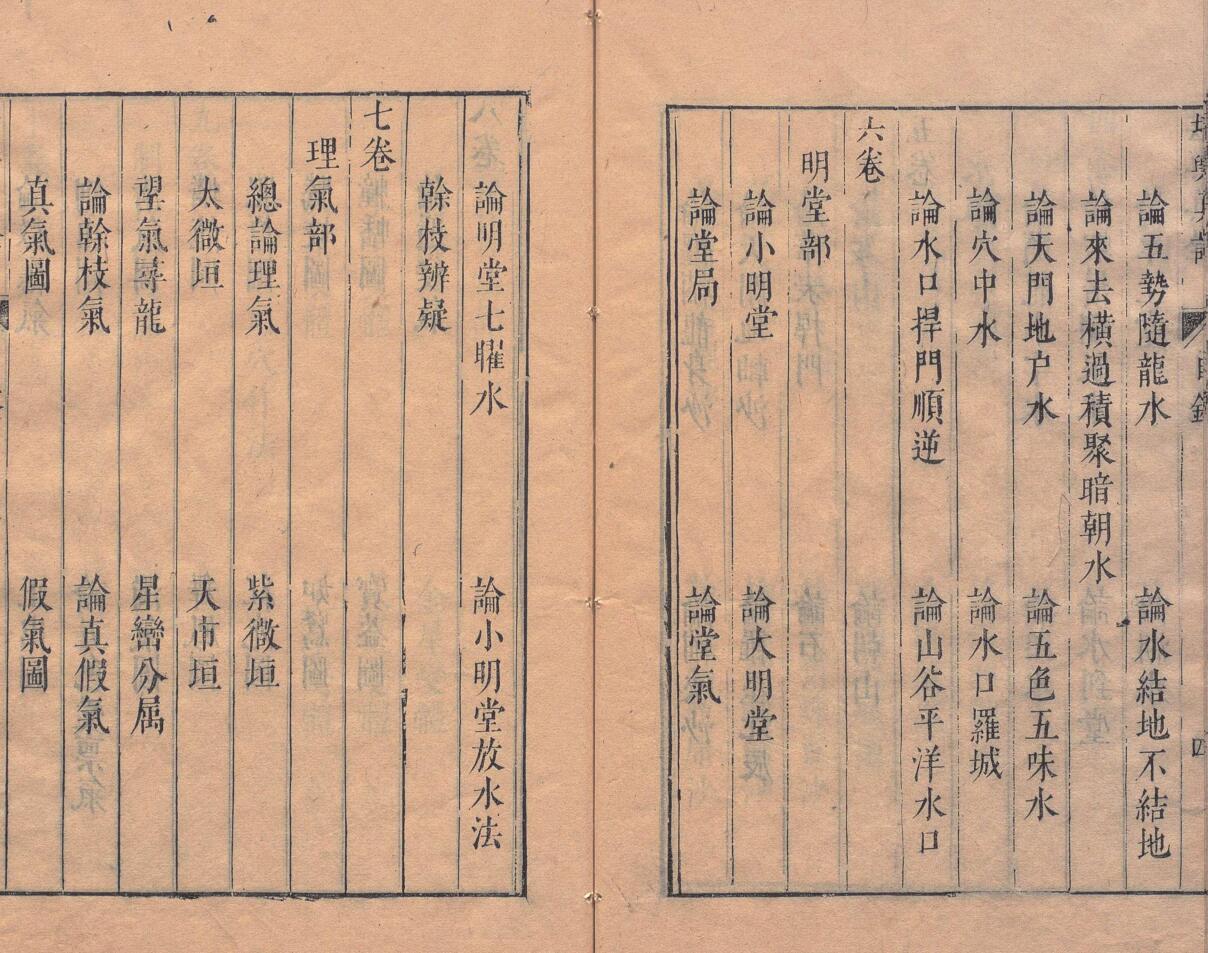 論五勢隨龍水　論水結地不結地
論來去橫過積聚暗朝水
論天門地户水　論五色五味水
論穴中水　論水口羅城
論水口捍門順逆　論山谷平洋水口
六卷
明堂部
論小明堂　論大明堂
論堂局　論堂氣
論明堂七曜水　論小明堂放水法
榦枝辨疑
七卷
理氣部
總論理氣　紫微垣
太微垣　天市垣
望氣尋龍　星巒分属
論榦枝氣　論真假氣
真氣圖　假氣圖